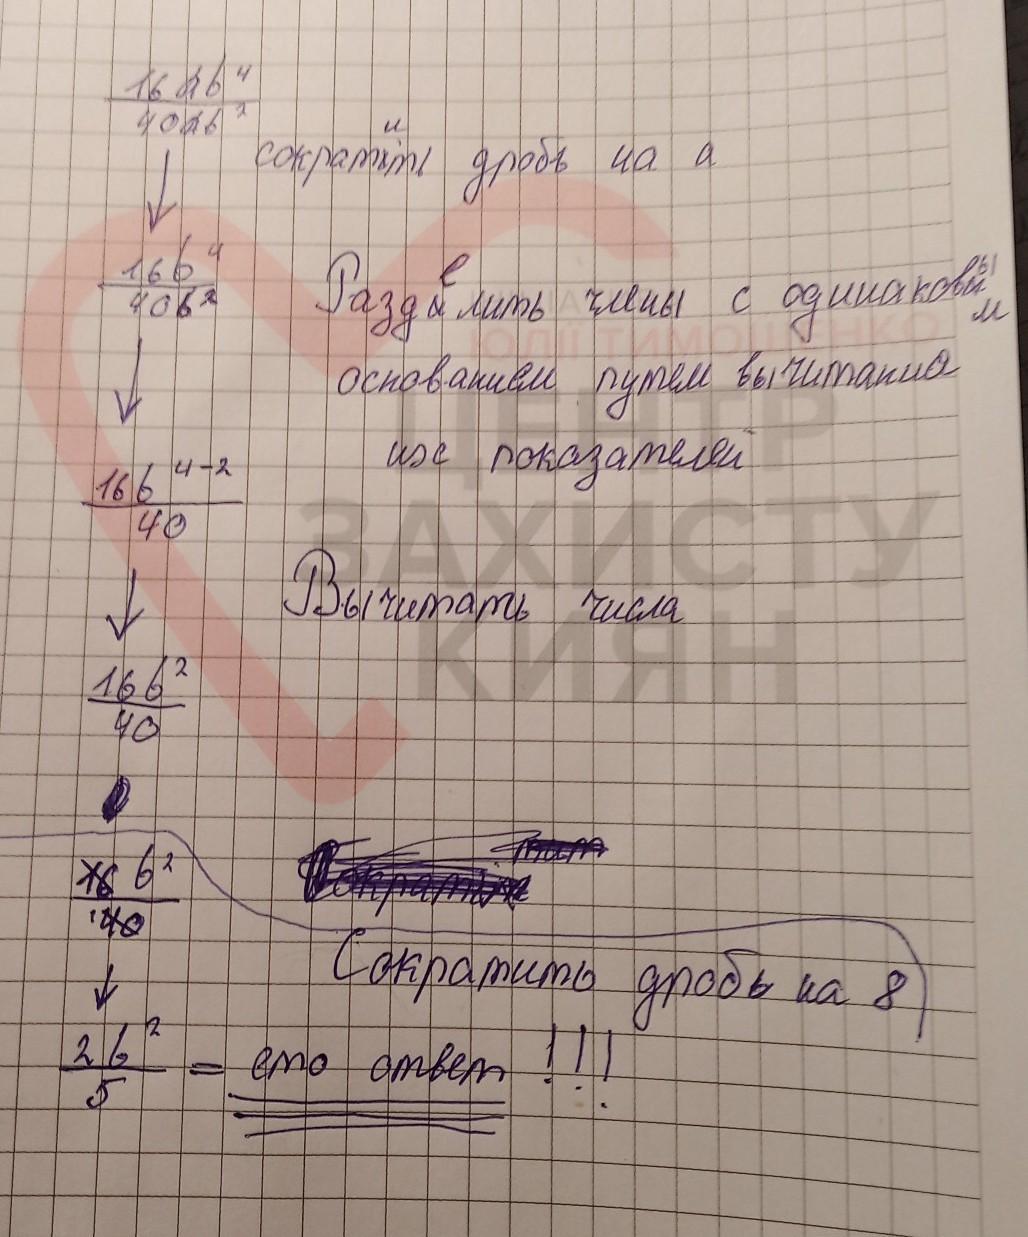 16ab⁴
40ab²
сократить дробь на а
16b⁴
40b²
Разделить члены с одинаковым
основанием путем вычитания
их показателей
16b⁴⁻²
40
Вычитать числа
16b²
40
16b²
40
Сократить дробь на 8
2b²
5
= ето ответ !!!
ЮЛІЇ ТИМОШЕНКО
ЦЕНТР
ЗАХИСТУ
КИЯН